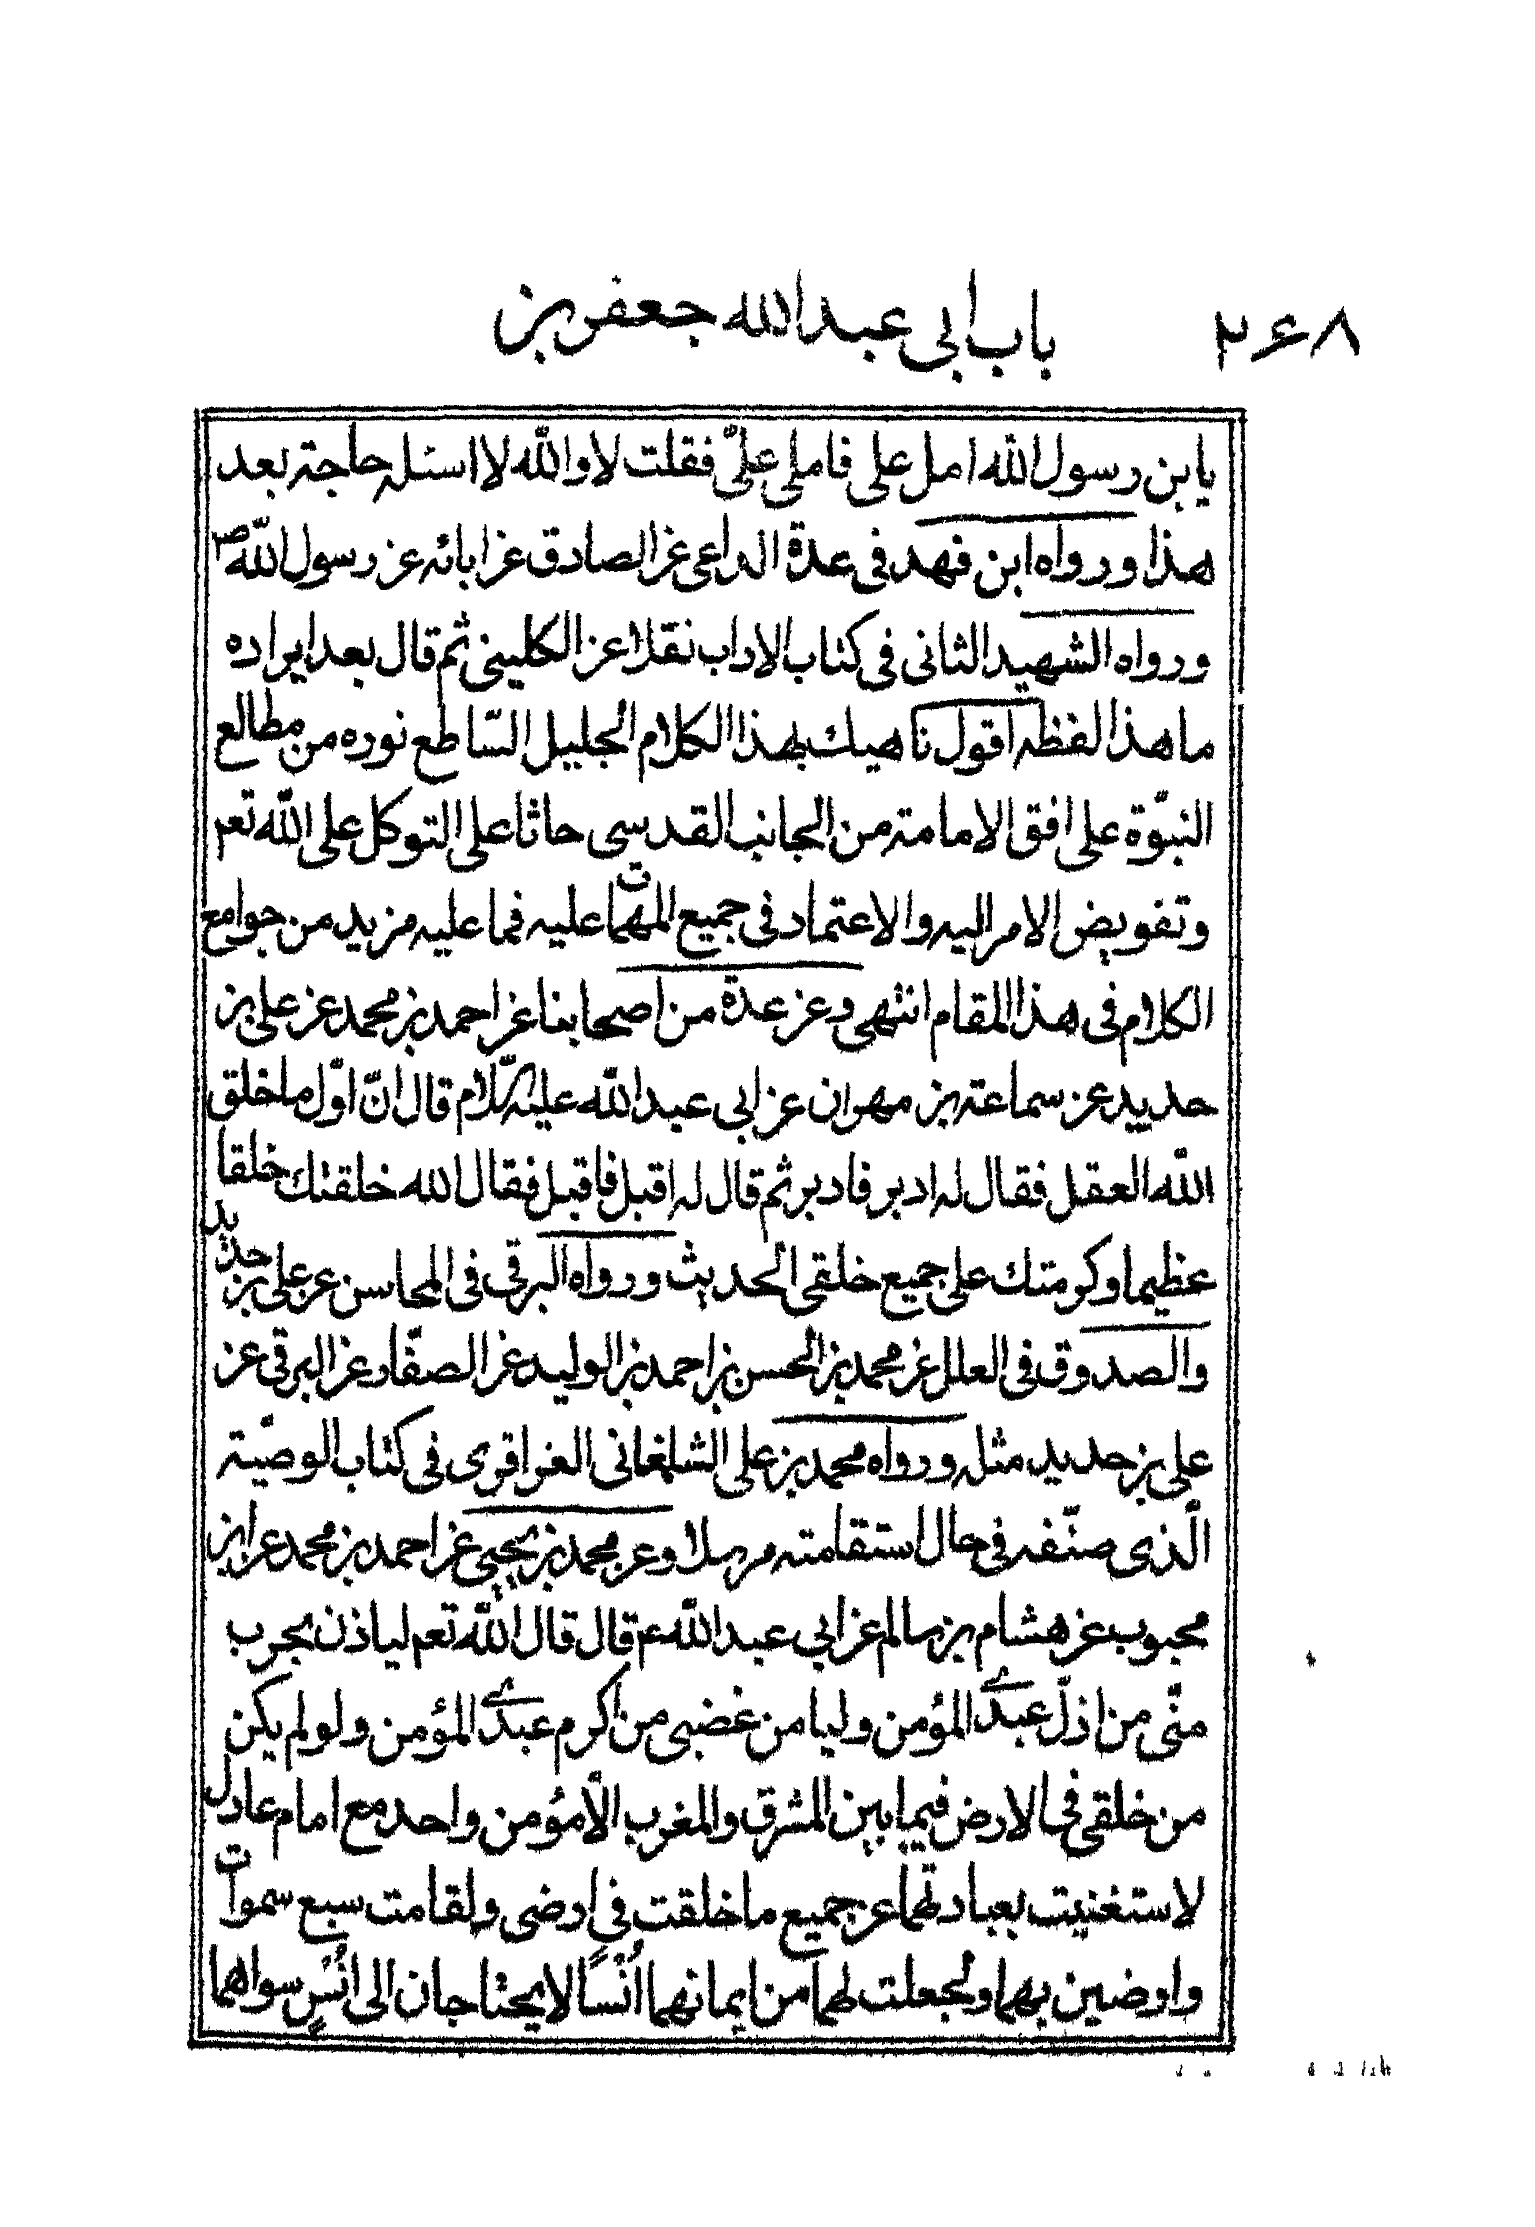 ٢۶٨ باب ابی عبد الله جعفر بن
یابن رسول الله امل علی فاملی علیّ فقلت لا والله لا اسئله حاجة بعد
هذا ورواه ابن فهد فی عدة الداعی عن الصادق عن ابائه عن رسول الله ص
ورواه الشهید الثانی فی کتاب الاداب نقلا عن الکلینی ثم قال بعد ایراده
ما هذا لفظه اقول ناهیك بهذا الکلام الجلیل السّاطع نوره من مطالع
النبوّة علی افق الامامة من الجانب القدسی حاثا علی التوکل علی الله تعم
وتفویض الامر الیه والاعتماد فی جمیع المهمات علیه فما علیه مزید من جوامع
الکلام فی هذا المقام انتهی وعن عدة من اصحابنا عن احمد بن محمد عن علی بن
حدید عن سماعة بن مهران عن ابی عبد الله علیه السّلام قال انّ اوّل ما خلق
الله العقل فقال له ادبر فادبر ثم قال له اقبل فاقبل فقال الله خلقتك خلقا
عظیما وکرمتك علی جمیع خلقی الحدیث ورواه البرقی فی المحاسن عن علی بن حدید
والصدوق فی العلل عن محمد بن الحسن بن احمد بن الولید عن الصفّار عن البرقی عن
علی بن حدید مثله ورواه محمد بن علی الشلمغانی الغراقری فی کتاب الوصیّة
الّذی صنّفه فی حال استقامته مرسلا وعن محمد بن یحیی عن احمد بن محمد عن ابن
محبوب عن هشام بن سالم عن ابی عبد الله ع قال قال الله تعم لیاذن بحرب
منّی من اذلّ عبدی المؤمن ولیامن غضبی من اکرم عبدی المؤمن ولو لم یکن
من خلقی فی الارض فیما بین المشرق والمغرب الّا مؤمن واحد مع امام عادل
لاستغنیت بعبادتهما عن جمیع ما خلقت فی ارضی ولقامت سبع سموات
وارضین بهما ولجعلت لهما من ایمانهما اُنسًا لا یحتاجان الی اُنسٍ سواهما